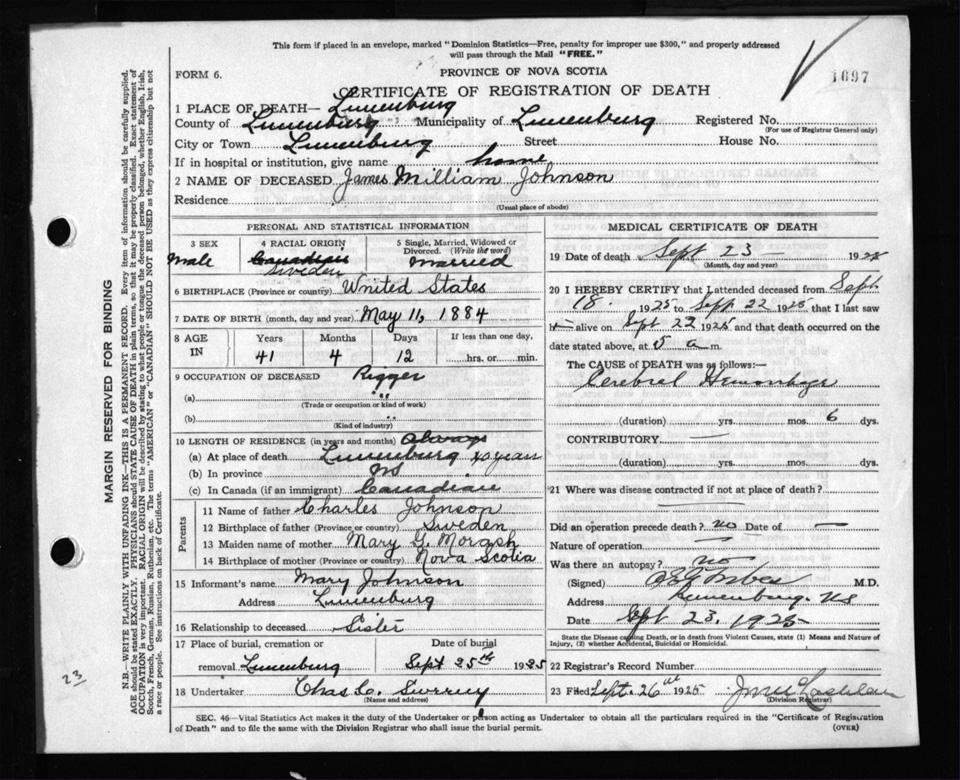 This form if placed in an envelope, marked "Dominion Statistics—Free, penalty for improper use $300," and properly addressed
will pass through the Mail "FREE."
FORM 6.
PROVINCE OF NOVA SCOTIA
1697
CERTIFICATE OF REGISTRATION OF DEATH
1 PLACE OF DEATH— Lunenburg
County of Lunenburg Municipality of Lunenburg Registered No.
(For use of Registrar General only)
City or Town Lunenburg Street House No.
If in hospital or institution, give name home
2 NAME OF DECEASED James William Johnson
Residence
(Usual place of abode)
PERSONAL AND STATISTICAL INFORMATION
3 SEX
Male
4 RACIAL ORIGIN
Canadian
Sweden
5 Single, Married, Widowed or
Divorced. (Write the word)
Married
6 BIRTHPLACE (Province or country) United States
7 DATE OF BIRTH (month, day and year) May 11, 1884
8 AGE
IN
Years Months Days If less than one day,
41 4 12 hrs. or min.
9 OCCUPATION OF DECEASED Rigger
(a) "
(Trade or occupation or kind of work)
(b) "
(Kind of industry)
10 LENGTH OF RESIDENCE (in years and months) Always
(a) At place of death Lunenburg 40 years
(b) In province NS
(c) In Canada (if an immigrant) Canadian
Parents
11 Name of father Charles Johnson
12 Birthplace of father (Province or country) Sweden
13 Maiden name of mother Mary G. Morash
14 Birthplace of mother (Province or country) Nova Scotia
15 Informant's name Mary Johnson
Address Lunenburg
16 Relationship to deceased Sister
17 Place of burial, cremation or Date of burial
removal Lunenburg Sept 25th 1925
18 Undertaker Chas L.
(Name and address)
MEDICAL CERTIFICATE OF DEATH
19 Date of death Sept 23 1925
(Month, day and year)
20 I HEREBY CERTIFY that I attended deceased from Sept
18. 1925 to Sept 22 1925 that I last saw
alive on Sept 22 1925 and that death occurred on the
date stated above, at 5 a m.
The CAUSE OF DEATH was as follows:
Cerebral Hemorrhage
(duration) yrs. mos. 6 dys.
CONTRIBUTORY —
(duration) yrs. mos. dys.
21 Where was disease contracted if not at place of death?
—
Did an operation precede death? no Date of —
Nature of operation —
Was there an autopsy? no
(Signed) M.D.
Address Lunenburg. NS
Date Sept 23, 1925
State the Disease causing Death, or in death from Violent Causes, state (1) Means and Nature of
Injury, (2) whether Accidental, Suicidal or Homicidal.
22 Registrar's Record Number
23 Filed Sept. 26th 1925
(Division Registrar)
SEC. 46—Vital Statistics Act makes it the duty of the Undertaker or person acting as Undertaker to obtain all the particulars required in the "Certificate of Registration
of Death" and to file the same with the Division Registrar who shall issue the burial permit.
(OVER)
MARGIN RESERVED FOR BINDING
N.B.—WRITE PLAINLY WITH UNFADING INK—THIS IS A PERMANENT RECORD. Every item of information should be carefully supplied.
AGE should be stated EXACTLY. PHYSICIANS should STATE CAUSE OF DEATH in plain terms, so that it may be properly classified. Exact statement of
OCCUPATION is very important. RACIAL ORIGIN will be described by stating to what people or tongue the deceased person belonged, whether English, Irish,
Scotch, French, German, Russian, Ruthenian, etc. The terms "AMERICAN" or "CANADIAN" SHOULD NOT BE USED as they express citizenship but not
a race or people. See instructions on back of Certificate.
23